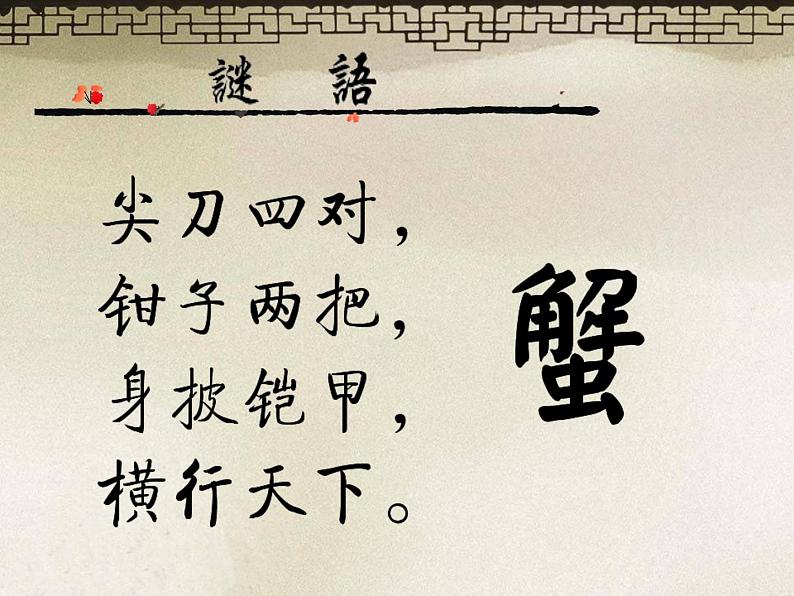 謎 語
尖刀四对，
钳子两把，
身披铠甲，
横行天下。
蟹